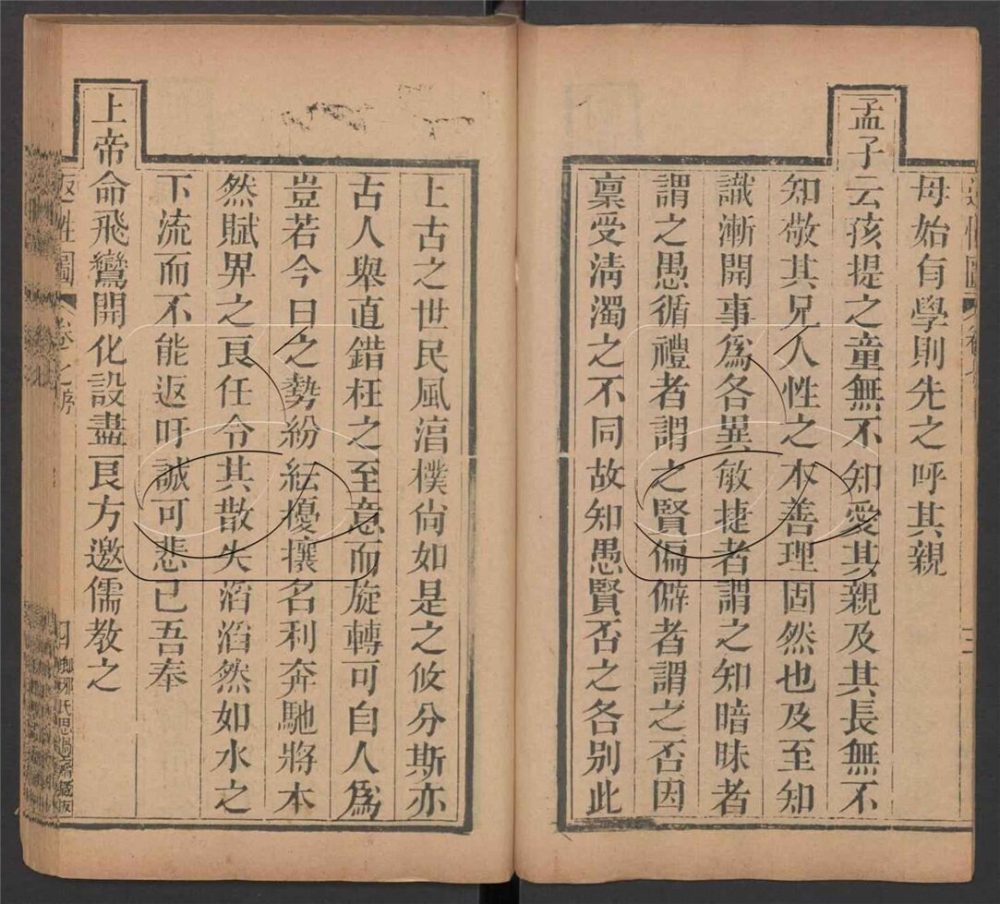 母始有學則先之呼其親
孟子云孩提之童無不知愛其親及其長無不
知敬其兄人性之本善理固然也及至知
識漸開事爲各異敏捷者謂之知暗昧者
謂之愚循禮者謂之賢偏僻者謂之否因
稟受清濁之不同故知愚賢否之各别此
上古之世民風湻樸尙如是之攸分斯亦
古人舉直錯枉之至意而旋轉可自人爲
豈若今日之勢紛紜擾攘名利奔馳將本
然賦畀之良任令其散失滔滔然如水之
下流而不能返吁誠可悲已吾奉
上帝命飛鸞開化設盡良方邀儒教之
返性圖 卷之序 四